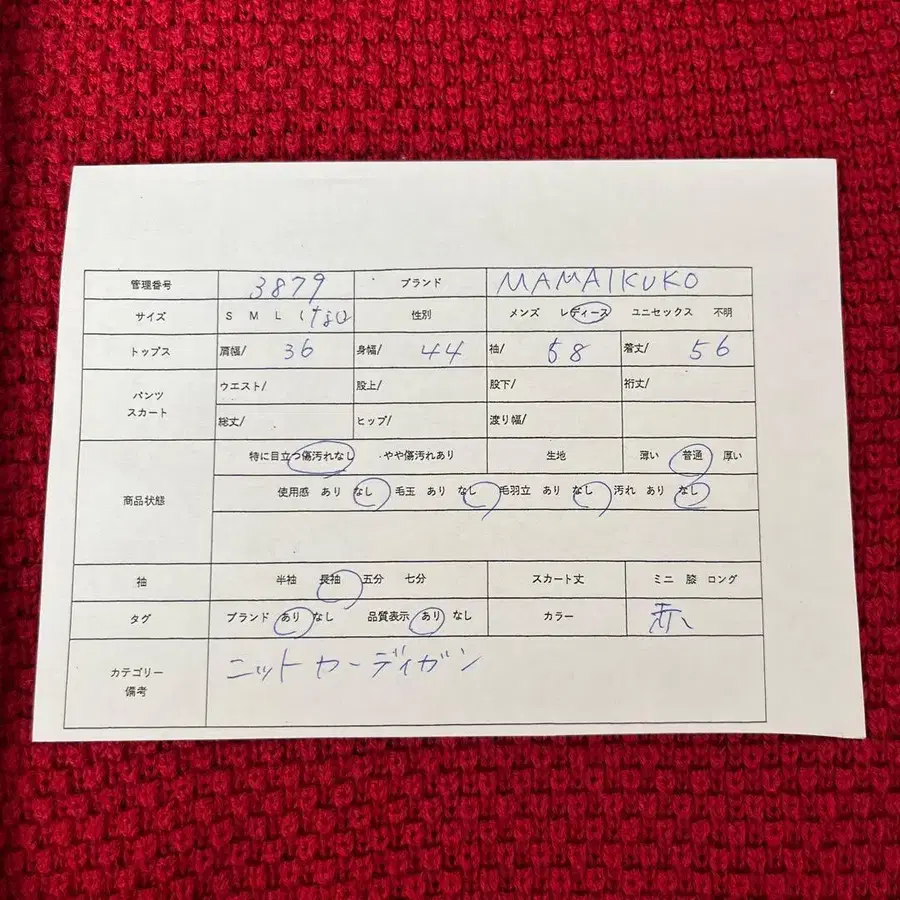 管理番号 3879 ブランド MAMAIKUKO
サイズ S M L 性別 メンズ レディース ユニセックス 不明
トップス 肩幅/ 36 身幅/ 44 袖/ 58 着丈/ 56
パンツ スカート ウエスト/ 股上/ 股下/ 裄丈/
総丈/ ヒップ/ 渡り幅/
商品状態 特に目立つ傷汚れなし ・やや傷汚れあり 生地 薄い 普通 厚い
使用感 あり なし 毛玉 あり なし 毛羽立 あり なし 汚れ あり なし
袖 半袖 長袖 五分 七分 スカート丈 ミニ 膝 ロング
タグ ブランド あり なし 品質表示 あり なし カラー 赤
カテゴリー 備考 ニットカーディガン